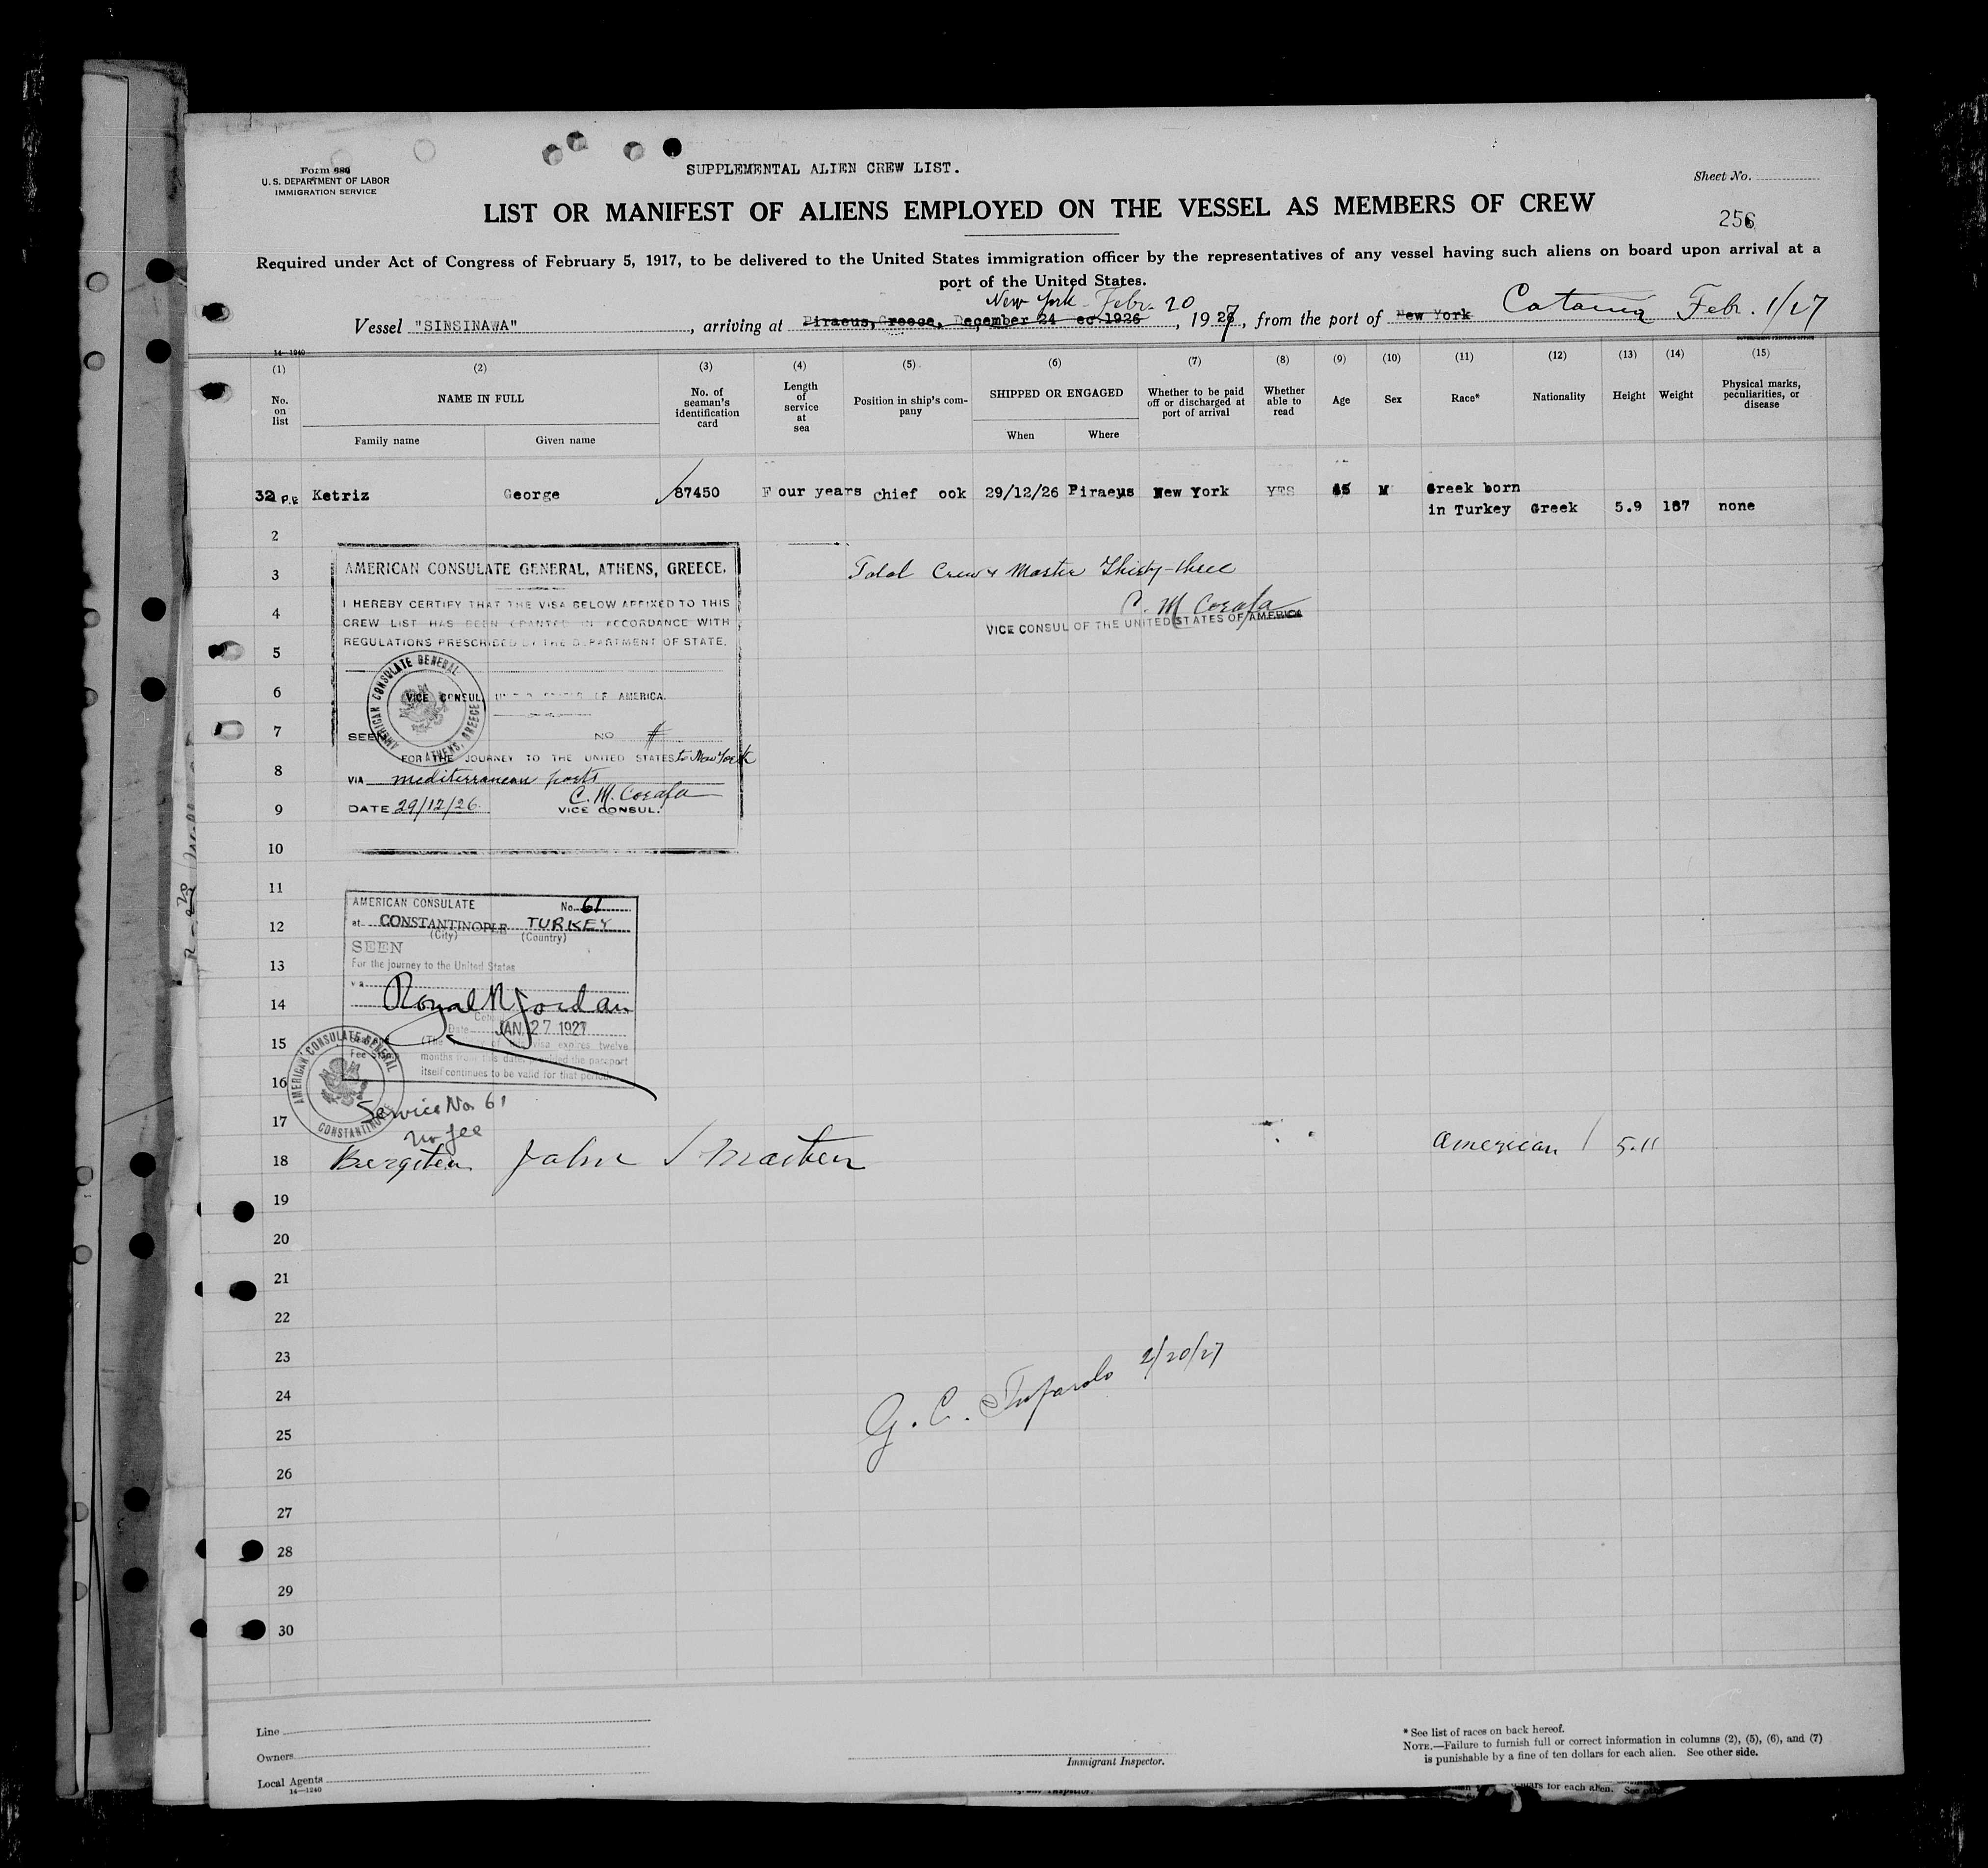 Form 680
U. S. DEPARTMENT OF LABOR
IMMIGRATION SERVICE
SUPPLEMENTAL ALIEN CREW LIST.
Sheet No.
LIST OR MANIFEST OF ALIENS EMPLOYED ON THE VESSEL AS MEMBERS OF CREW
256
Required under Act of Congress of February 5, 1917, to be delivered to the United States immigration officer by the representatives of any vessel having such aliens on board upon arrival at a
port of the United States.
New York Febr. 20
Vessel "SINSINAWA", arriving at Piraeus, Greece, December 24 1926, 1927, from the port of New York Catania Febr. 1/27
14-1240
(1) (2) (3) (4) (5) (6) (7) (8) (9) (10) (11) (12) (13) (14) (15)
No. on list
NAME IN FULL
Family name
Given name
No. of seaman's identification card
Length of service at sea
Position in ship's company
SHIPPED OR ENGAGED
When
Where
Whether to be paid off or discharged at port of arrival
Whether able to read
Age
Sex
Race*
Nationality
Height
Weight
Physical marks, peculiarities, or disease
32 P.R Ketriz George 87450 F our years chief ook 29/12/26 Piraeus New York YES 45 M Greek born
in Turkey Greek 5.9 187 none
2
3
Total Crew & Master Thirty-three
C. M. Corafa
VICE CONSUL OF THE UNITED STATES OF AMERICA
AMERICAN CONSULATE GENERAL, ATHENS, GREECE.
I HEREBY CERTIFY THAT THE VISA BELOW AFFIXED TO THIS
4
CREW LIST HAS BEEN GRANTED IN ACCORDANCE WITH
REGULATIONS PRESCRIBED BY THE DEPARTMENT OF STATE.
5
AMERICAN CONSULATE GENERAL
ATHENS, GREECE
6
VICE CONSUL OF AMERICA.
7
SEEN NO #
FOR THE JOURNEY TO THE UNITED STATES to New York
8
VIA mediterranean ports
C. M. Corafa
9
DATE 29/12/26 VICE CONSUL.
10
11
AMERICAN CONSULATE No. 61
12
at CONSTANTINOPLE TURKEY
(City) (Country)
SEEN
13
For the journey to the United States
via
14
Royal R Jordan
Date JAN 27 1927
15
(The validity of this visa expires twelve
months from this date provided the passport
itself continues to be valid for that period.)
16
AMERICAN CONSULATE GENERAL
CONSTANTINOPLE
Service No. 61
no fee
17
18 Bergsten John / Master American / 5.11
19
20
21
22
23
2/20/27
24
G. C.
25
26
27
28
29
30
Line
Owners
Local Agents
14-1240
Immigrant Inspector.
* See list of races on back hereof.
NOTE.—Failure to furnish full or correct information in columns (2), (5), (6), and (7)
is punishable by a fine of ten dollars for each alien. See other side.